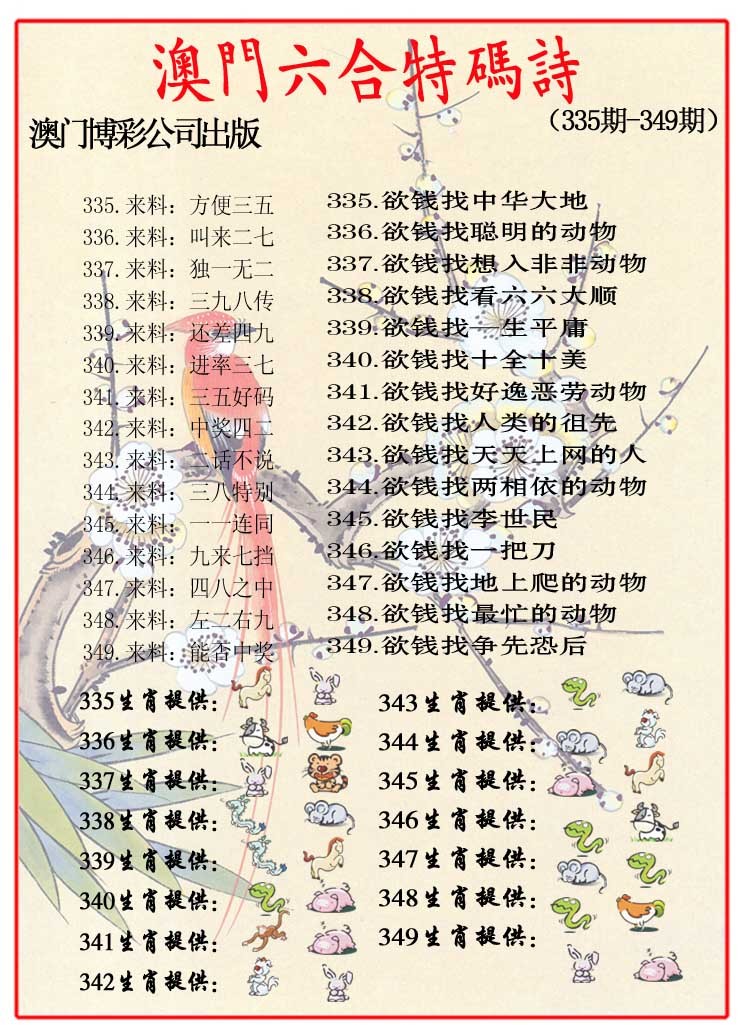 澳門六合特碼詩
澳门博彩公司出版
（335期-349期）
335.来料：方便三五
336.来料：叫来二七
337.来料：独一无二
338.来料：三九八传
339.来料：还差四九
340.来料：进率三七
341.来料：三五好码
342.来料：中奖四二
343.来料：二话不说
344.来料：三八特别
345.来料：一一连同
346.来料：九来七挡
347.来料：四八之中
348.来料：左二右九
349.来料：能否中奖
335.欲钱找中华大地
336.欲钱找聪明的动物
337.欲钱找想入非非动物
338.欲钱找看六六大顺
339.欲钱找一生平庸
340.欲钱找十全十美
341.欲钱找好逸恶劳动物
342.欲钱找人类的祖先
343.欲钱找天天上网的人
344.欲钱找两相依的动物
345.欲钱找李世民
346.欲钱找一把刀
347.欲钱找地上爬的动物
348.欲钱找最忙的动物
349.欲钱找争先恐后
335生肖提供：
336生肖提供：
337生肖提供：
338生肖提供：
339生肖提供：
340生肖提供：
341生肖提供：
342生肖提供：
343生肖提供：
344生肖提供：
345生肖提供：
346生肖提供：
347生肖提供：
348生肖提供：
349生肖提供：